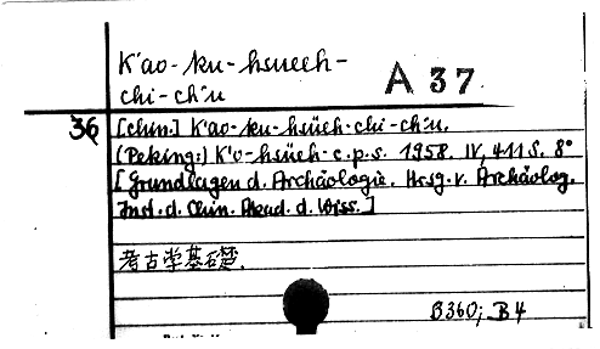 K'ao-ku-hsueeh-
chi-ch'u
A 37
36
[chin.] K'ao-ku-hsüeh-chi-ch'u.
(Peking:) K'o-hsüeh-c.p.s. 1958. IV, 411 S. 8°
[Grundlagen d. Archäologie. Hrsg. v. Archäolog.
Inst. d. Chin. Akad. d. Wiss.]
考古学基础.
B360; B4